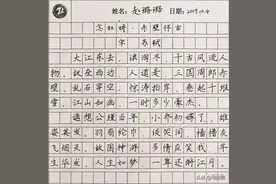 姓名: 赵璐璐 日期: 2019.10.4
念奴娇·赤壁怀古
宋 苏轼
大江东去,浪淘尽,千古风流人
物。故垒西边,人道是,三国周郎赤
壁。乱石穿空,惊涛拍岸,卷起千堆
雪。江山如画,一时多少豪杰。
遥想公瑾当年,小乔初嫁了,雄
姿英发。羽扇纶巾,谈笑间,樯橹灰
飞烟灭。故国神游,多情应笑我,早
生华发。人生如梦,一尊还酹江月。